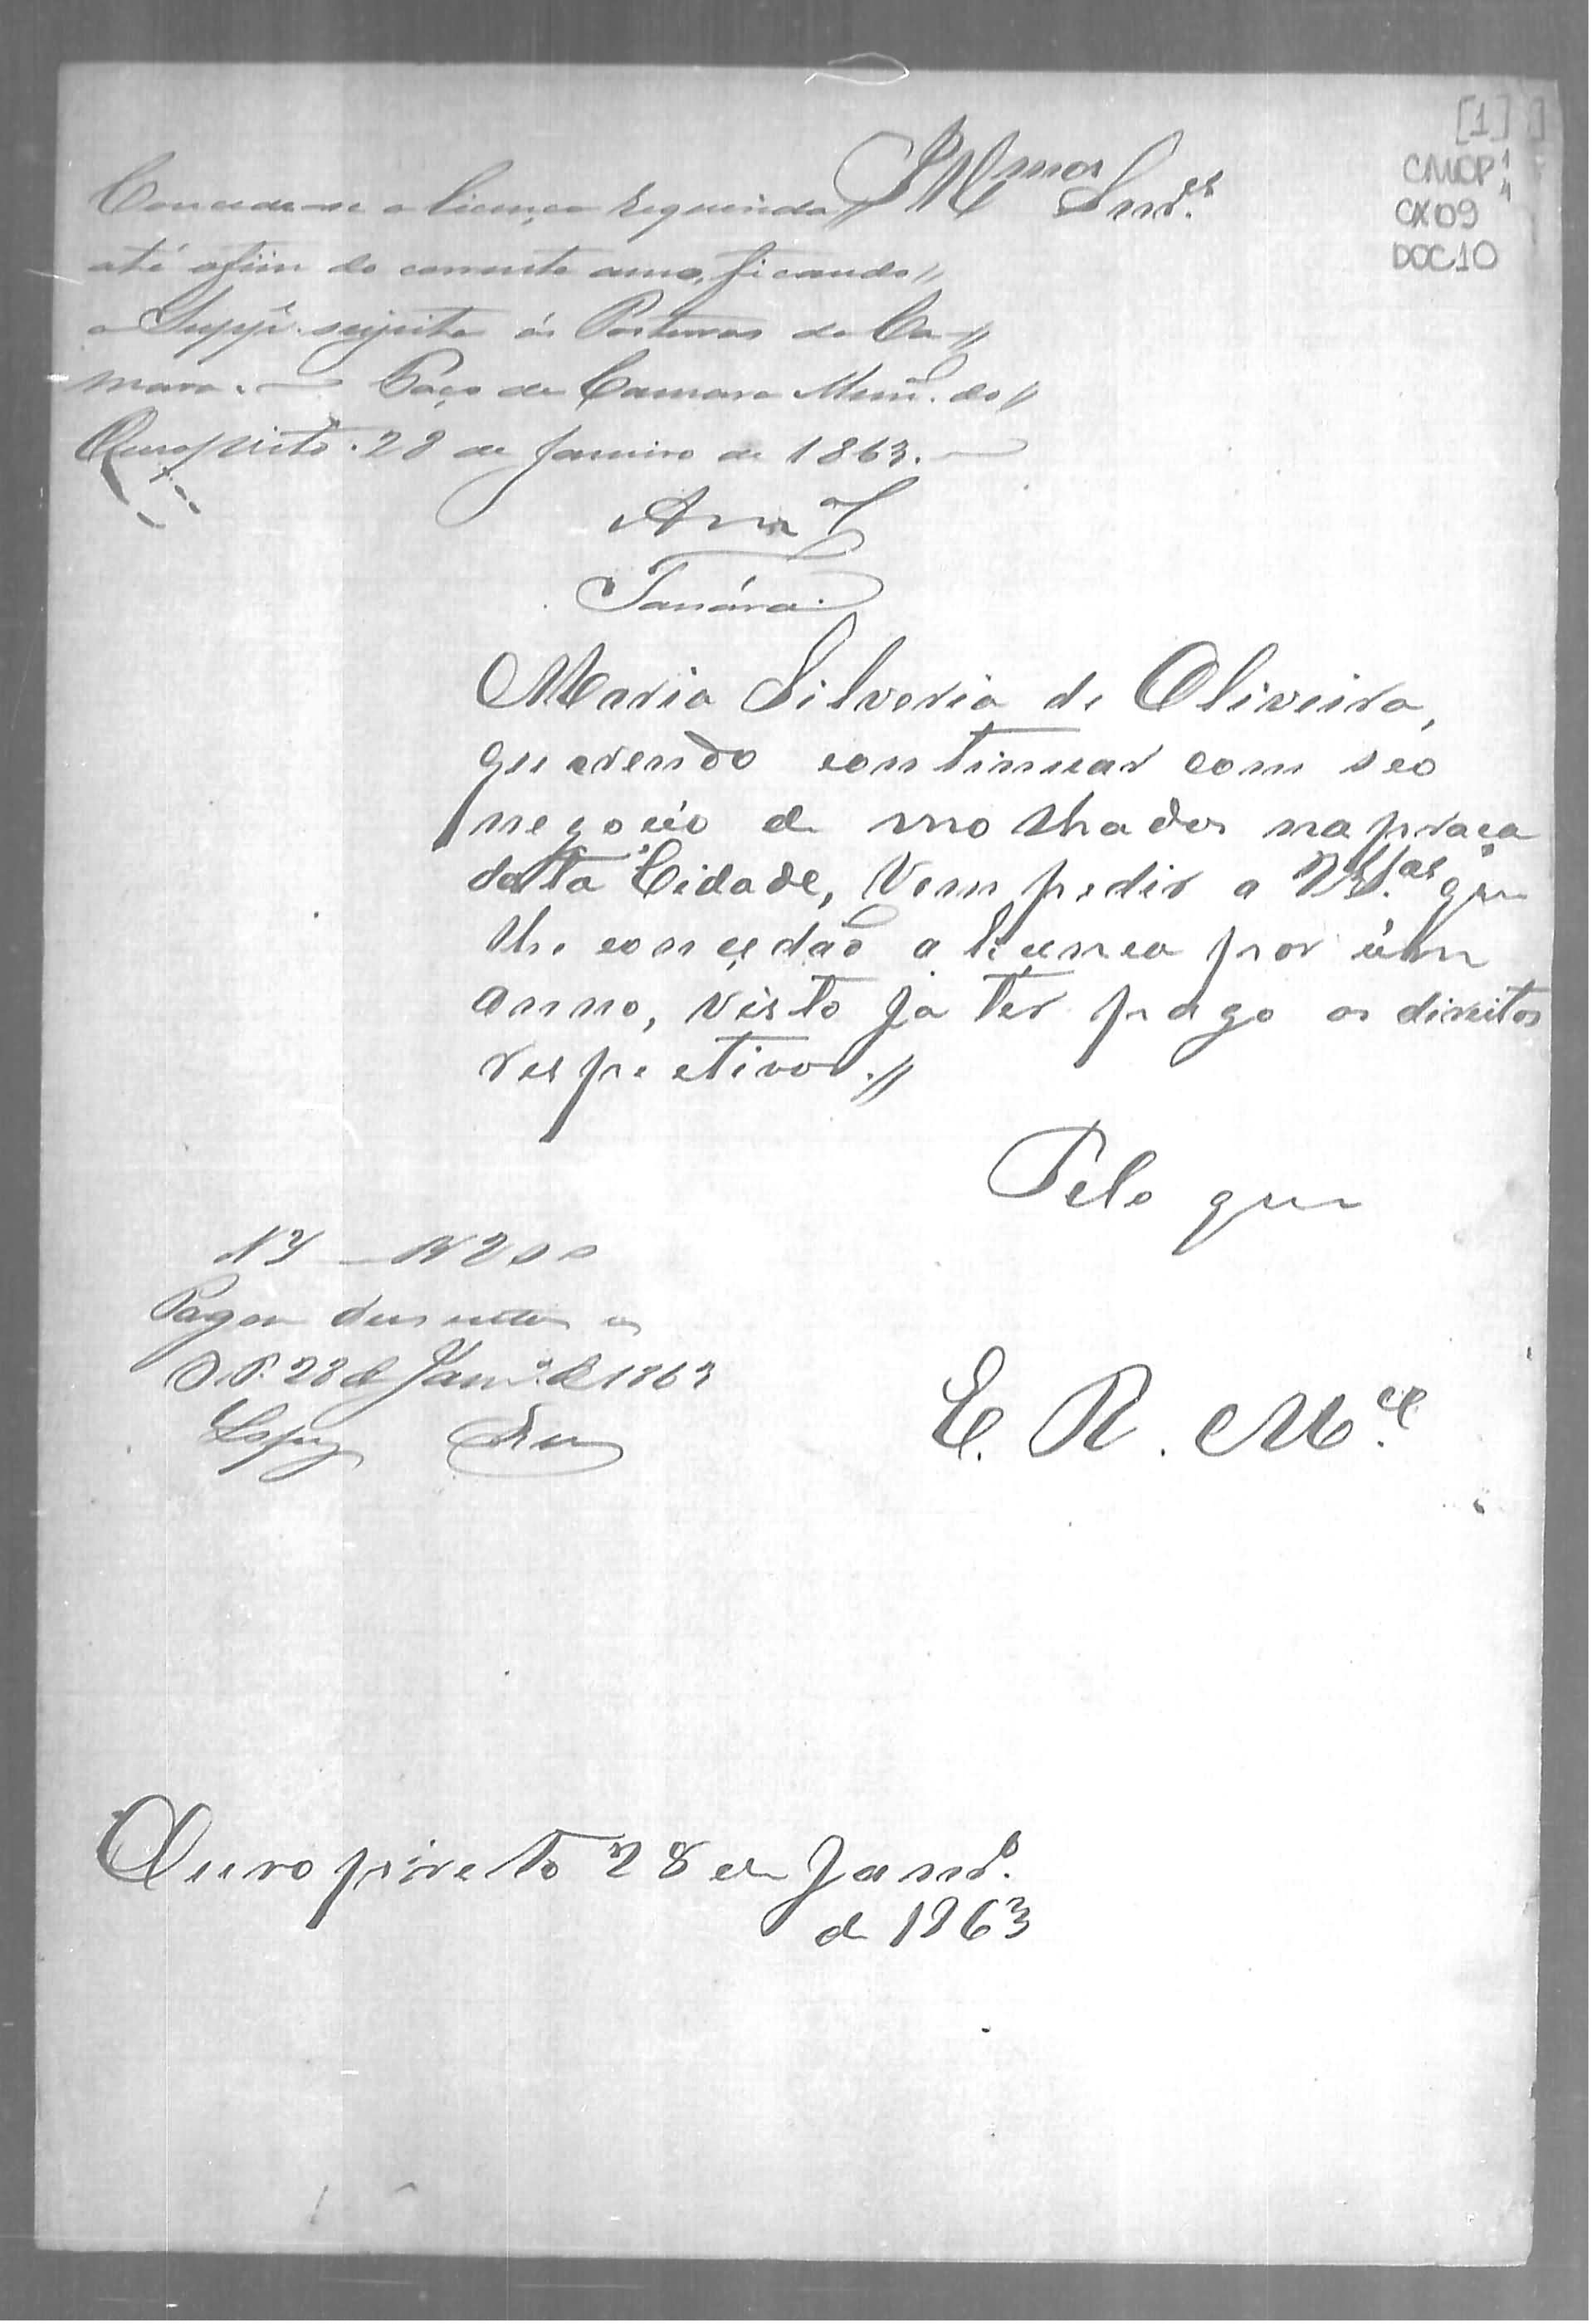 [1]
CMOP 1
4
CX09
DOC.10
Illmos Snres.
Concede-se a licença requerida //
até o fim do corrente anno, ficando //
a Suppe. sujeita ás Posturas da Ca- //
mara. — Paço da Camara Mun. do //
Ouropreto. 28 de Janeiro de 1863. —
Maria Silveria de Oliveira,
querendo continuar com seo
negocio de molhados na praça
desta Cidade, Vem pedir a VSas. que
lhe concedaõ a licença por úm
anno, visto ja ter pago os direitos
respectivos. //
Pelo que
E. R. Mce.
200
Pagou dusentos rs
O. P. 28 de Janro. de 1863
Ouro preto 28 de Janro.
de 1863